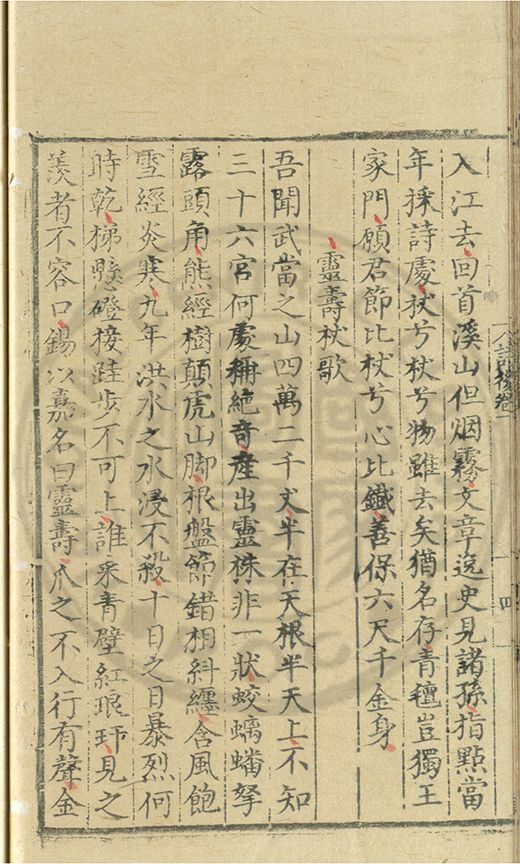 卷一
四
入江去回首溪山但烟霧文章逸史見諸孫指點當
年採詩處杖兮杖兮物雖去矣猶名存青氊豈獨王
家門願君節比杖兮心比鐵善保六尺千金身
靈壽杖歌
吾聞武當之山四萬二千丈半在天根半天上不知
三十六宮何處稱絶奇産出靈株非一狀蛟螭蟠拏
露頭角熊經樹顛虎山脚根盤節錯相糾纒含風飽
雪經炎寒九年洪水之水浸不殺十日之日暴烈何
時乾梯懸磴接跬步不可上誰采青壁紅琅玕見之
羨者不容口錫以嘉名曰靈壽爪之不入行有聲金